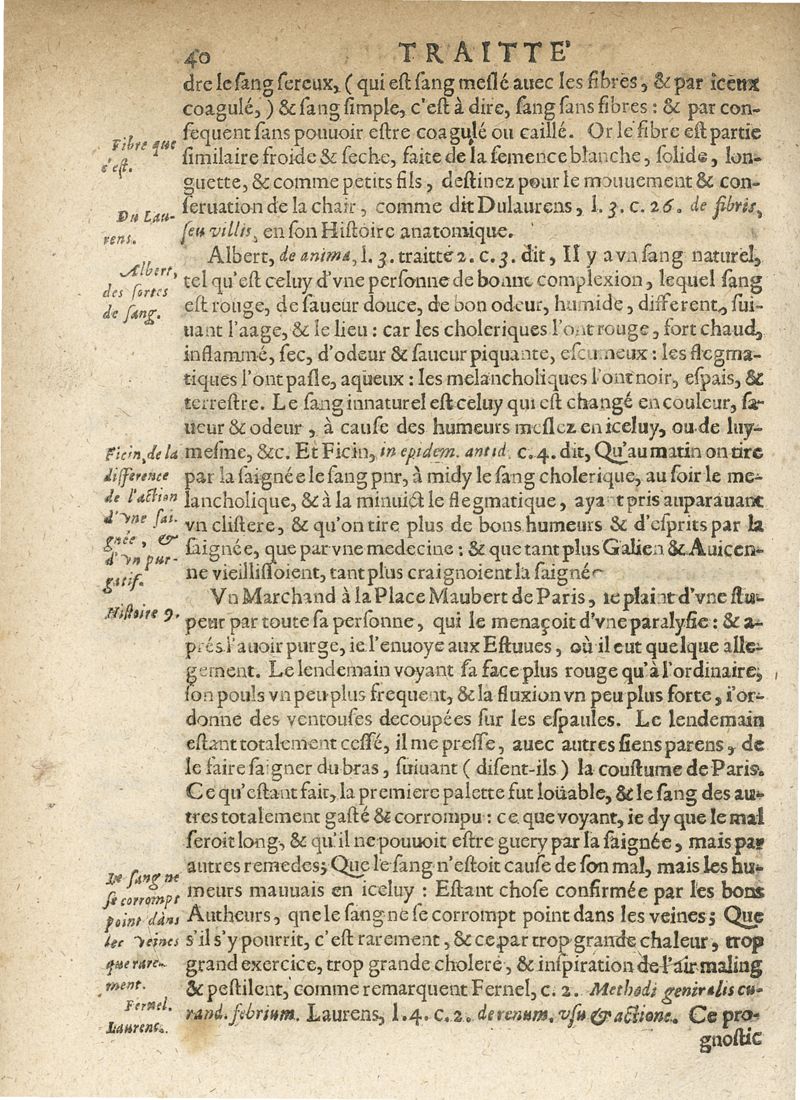 40 TRAITTE'
dre le sang sereux, (qui est sang meslé auec les fibres, & par iceux
coagulé,) & sang simple, c'est à dire, sang sans fibres: & par con-
sequent sans pouuoir estre coagulé ou caillé. Or le fibre est partie
Fibre que
c'est.
similaire froide & seche, faite de la semence blanche, solide, lon-
guette, & comme petits fils, destinez pour le mouuement & con-
seruation de la chair, comme dit Dulaurens, l. 3. c. 26. de fibris,
Du Lau-
rens.
seu villis, en son Histoire anatomique.
Albert, de anima, l. 3. traitté 2. c. 3. dit, Il y a vn sang naturel,
Albert,
des sortes
de sang.
tel qu'est celuy d'vne personne de bonne complexion, lequel sang
est rouge, de saueur douce, de bon odeur, humide, different, sui-
uant l'aage, & le lieu: car les choleriques l'ont rouge, fort chaud,
inflammé, sec, d'odeur & saueur piquante, escumeux: les flegma-
tiques l'ont pasle, aqueux: les melancholiques l'ont noir, espais, &
terrestre. Le sang innaturel est celuy qui est changé en couleur, sa-
ueur & odeur, à cause des humeurs meslez en iceluy, ou de luy-
mesme, &c. Et Ficin, in epidem. antid. c. 4. dit, Qu'au matin on tire
Ficin, de la
difference
de l'action
d'vne sai-
gnée, &
d'vn pur-
gatif.
par la saignée le sang pur, à midy le sang cholerique, au soir le me-
lancholique, & à la minuict le flegmatique, ayant pris auparauant
vn clistere, & qu'on tire plus de bons humeurs & d'esprits par la
saignée, que par vne medecine: & que tant plus Galien & Auicen-
ne vieillissoient, tant plus craignoient la saignée
Vn Marchand à la Place Maubert de Paris, se plaint d'vne stu-
Histoire 9.
peur par toute sa personne, qui le menaçoit d'vne paralysie: & a-
prés l'auoir purge, ie l'enuoye aux Estuues, où il eut quelque alle-
gement. Le lendemain voyant sa face plus rouge qu'à l'ordinaire,
son pouls vn peu plus frequent, & la fluxion vn peu plus forte, i'or-
donne des ventouses decoupées sur les espaules. Le lendemain
estant totalement cessé, il me presse, auec autres siens parens, de
le faire saigner du bras, suiuant (disent-ils) la coustume de Paris.
Ce qu'estant fait, la premiere palette fut loüable, & le sang des au-
tres totalement gasté & corrompu: ce que voyant, ie dy que le mal
seroit long, & qu'il ne pouuoit estre guery par la saignée, mais par
autres remedes; Que le sang n'estoit cause de son mal, mais les hu-
Le sang ne
se corrompt
point dans
les veines
que rare-
ment.
meurs mauuais en iceluy: Estant chose confirmée par les bons
Autheurs, qne le sang ne se corrompt point dans les veines; Que
s'il s'y pourrit, c'est rarement, & ce par trop grande chaleur, trop
grand exercice, trop grande cholere, & inspiration de l'air maling
& pestilent, comme remarquent Fernel, c. 2. Methodi generalis cu-
Fernel.
Laurens.
rand. febrium. Laurens, l. 4. c. 2. de renum. vsu & actione. Ce pro-
gnostic